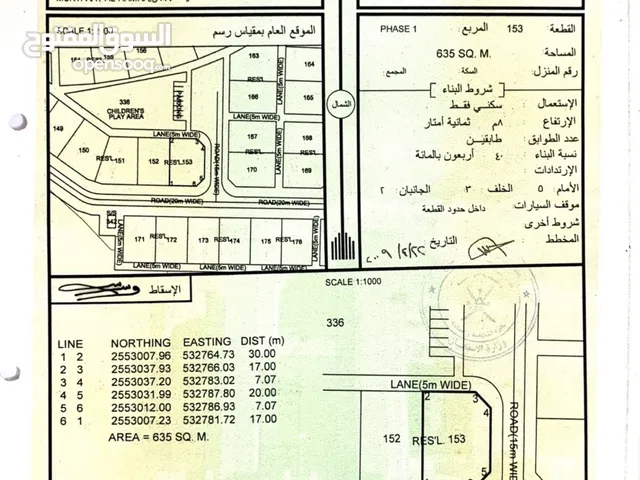 السوق المفتوح
opensooq.com
الموقع العام بمقياس رسم
163
164
RES'L
166
165
LANE(5m WIDE)
336
CHILDREN'S
PLAY AREA
LANE(5m WIDE)
149
150
RES'L
151
152
RES'L
153
167
168
RES'L
170
169
ROAD(20m WIDE)
ROAD(20m WIDE)
LANE(5m WIDE)
171
RES'L
172
173
RES'L
174
175
RES'L
176
LANE(5m WIDE)
LANE(5m WIDE)
LANE(5m WIDE)
الشمال
القطعة : 153 المربع : PHASE 1
المساحة : 635 SQ. M.
رقم المنزل : السكة : المجمع :
شروط البناء
الإستعمال : سكني فقط
الإرتفاع : ٨م ثمانية أمتار
عدد الطوابق : طابقين
نسبة البناء : ٤٠ أربعون بالمائة
الإرتدادات :
الأمام : ٥ الخلف : ٣ الجانبان : ٢
موقف السيارات : داخل حدود القطعة
شروط أخرى :
المخطط : التاريخ :
الإسقاط :
SCALE 1:1000
LINE NORTHING EASTING DIST (m)
1 2 2553007.96 532764.73 30.00
2 3 2553037.93 532766.03 17.00
3 4 2553037.20 532783.02 7.07
4 5 2553031.99 532787.80 20.00
5 6 2553012.00 532786.93 7.07
6 1 2553007.23 532781.72 17.00
AREA = 635 SQ. M.
336
LANE(5m WIDE)
2
3
4
152
RES'L
153
5
ROAD(15m WIDE)